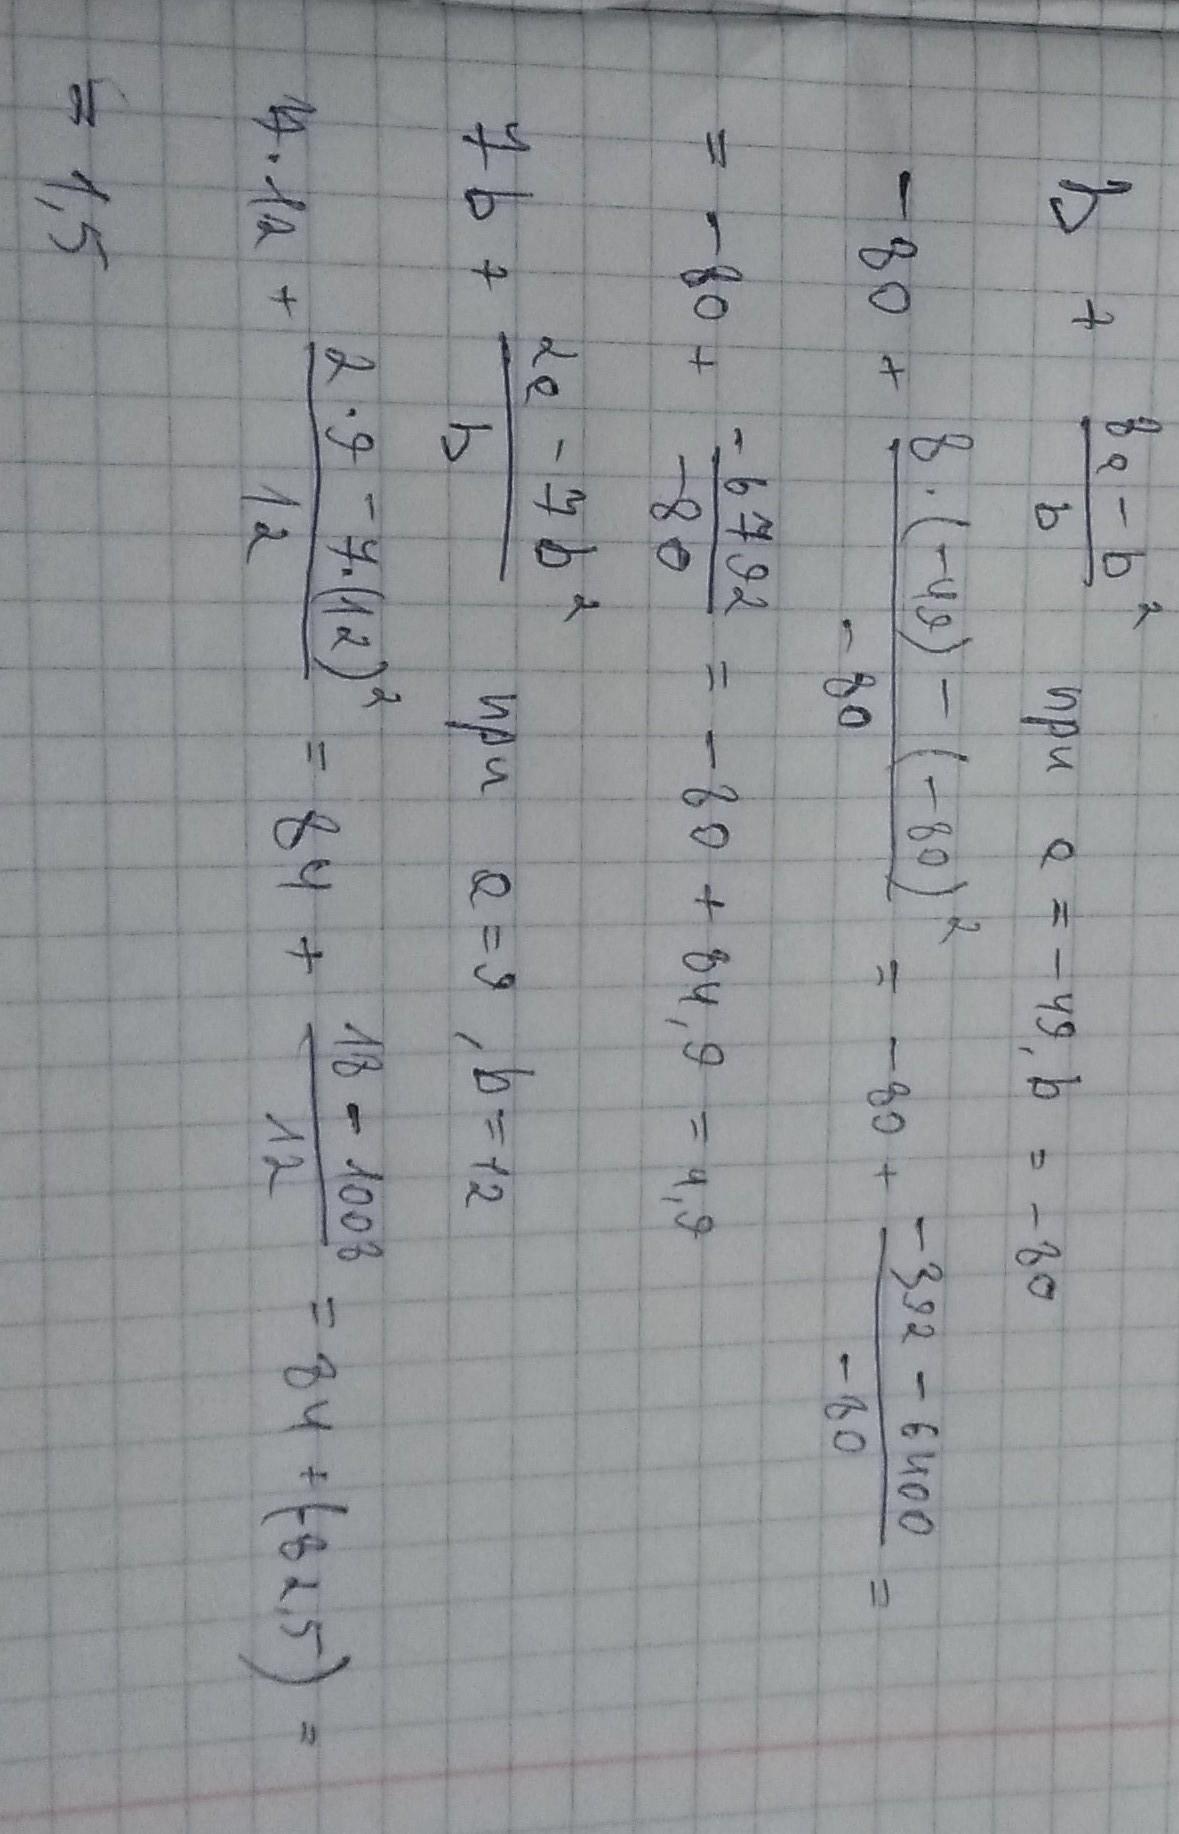 b + (8a - b²)/b при a = -49, b = -80
-80 + (8·(-49) - (-80)²)/(-80) = -80 + (-392 - 6400)/(-80) =
= -80 + (-6792)/(-80) = -80 + 84,9 = 4,9
7b + (2a - 7b²)/b при a = 9, b = 12
7·12 + (2·9 - 7·(12)²)/12 = 84 + (18 - 1008)/12 = 84 + (-82,5) =
= 1,5